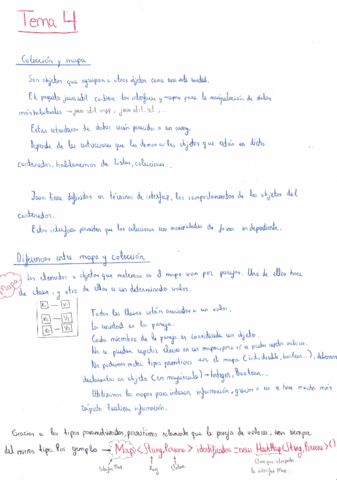 Tema 4
Colección y mapa
Son objetos que agrupan a otros objetos como una sola unidad.
El paquete java.util contiene las interfaces y mapas para la manipulación de datos
java.util.map, java.util.set, ...
Estas estructuras de datos serán parecidas a un array.
Depende de las restricciones que les demos a los objetos que estén en dicho
contenedor, hablaremos de listas, colecciones...
Java tiene definidos en términos de interfaz, los comportamientos de los objetos del
contenedor.
Estas interfaces permiten que las colecciones sean manipuladas de forma independiente.
Diferencias entre mapa y colección
Mapa
Los elementos u objetos que metemos en el mapa van por parejas. Uno de ellos hace
de clave, y otro de ellos es un determinado valor.
K1 — V1
K2 — V2
K3 — V3
Todas las claves están asociadas a un valor.
La unidad es la pareja.
Cada miembro de la pareja es considerado un objeto.
No se pueden repetir claves en un mapa, pero sí se puede repetir valores.
No podemos meter tipos primitivos en el mapa (int, double, boolean...), debemos
declararlos en objeto (en mayúscula) → Integer, Boolean...
Utilizamos los mapas para indexar información, gracias a eso se hace mucho más
rápido localizar información.
Gracias a los tipos parametrizados, permitimos que la pareja de valores, sean siempre
del mismo tipo. Por ejemplo → Map<String, Persona> identificados = new HashMap<String, Persona>()
Interfaz Map
Key
Value
Clase que implementa
la interfaz Map.